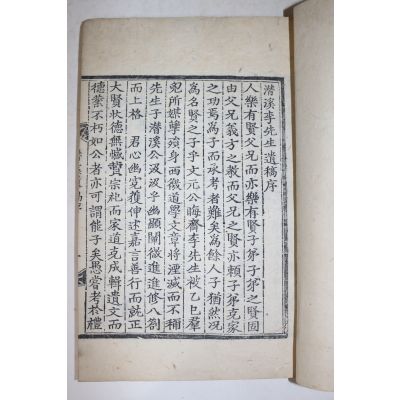 潜溪李先生遺稿序
人樂有賢父兄而亦樂有賢子弟子弟之賢固
由父兄義方之教而父兄之賢亦賴子弟克家
之功焉爲子而承考者難矣爲餘人子猶然况
爲名賢之子乎文元公晦齋李先生被乙巳羣
兇所媒孼殞身西徼道學文章将湮滅而不稱
先生子潜溪公汲汲乎幽顯闡微進進修八劄
而上格 君心幽寃獲伸述嘉言善行而就正
大賢狀德無憾蠱宗祀而家道克成輯遺文而
德業不朽如公者亦可謂能子矣愚嘗考於禮